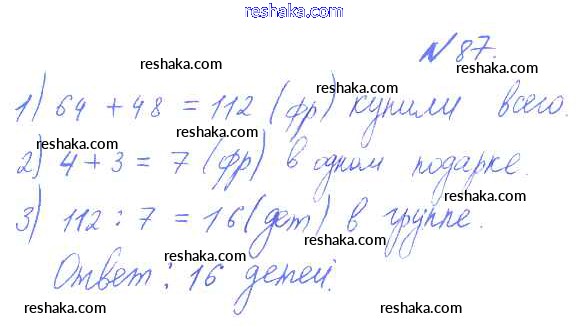 reshaka.com
№ 87.
reshaka.com
1) 64 + 48 = 112 (фр) купили всего.
reshaka.com reshaka.com
reshaka.com reshaka.com
2) 4 + 3 = 7 (фр) в одном подарке.
reshaka.com reshaka.com
3) 112 : 7 = 16 (дет) в группе.
reshaka.com reshaka.com
Ответ: 16 детей.
reshaka.com reshaka.com reshaka.com